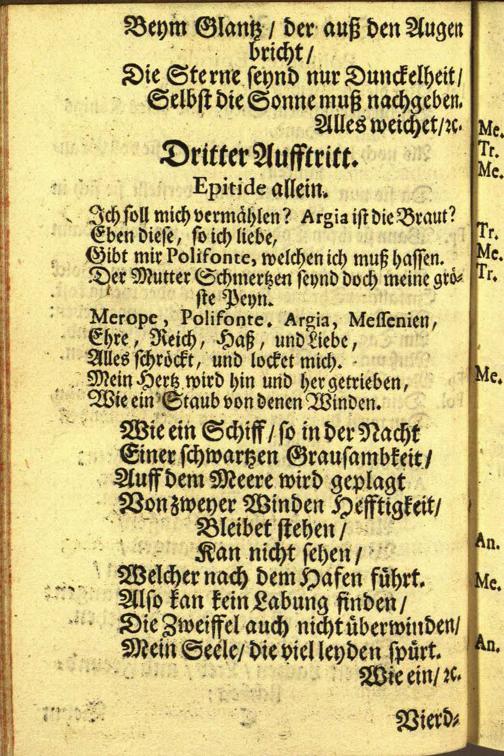 Beym Glantz / der auß den Augen
bricht /
Die Sterne seynd nur Dunckelheit /
Selbst die Sonne muß nachgeben.
Alles weichet / ꝛc.
Dritter Aufftritt.
Epitide allein.
Ich soll mich vermählen? Argia ist die Braut?
Eben diese, so ich liebe,
Gibt mir Polifonte, welchen ich muß hassen.
Der Mutter Schmertzen seynd doch meine grö-
ste Peyn.
Merope, Polifonte. Argia, Messenien,
Ehre, Reich, Haß, und Liebe,
Alles schröckt, und locket mich.
Mein Hertz wird hin und her getrieben,
Wie ein Staub von denen Winden.
Wie ein Schiff / so in der Nacht
Einer schwartzen Grausambkeit /
Auff dem Meere wird geplagt
Von zweyer Winden Hefftigkeit /
Bleibet stehen /
Kan nicht sehen /
Welcher nach dem Hafen führt.
Also kan kein Labung finden /
Die Zweiffel auch nicht überwinden /
Mein Seele / die viel leyden spürt.
Wie ein / ꝛc.
Vierd-
Me.
Tr.
Me.
Tr.
Me.
Tr.
Me.
An.
Me.
An.